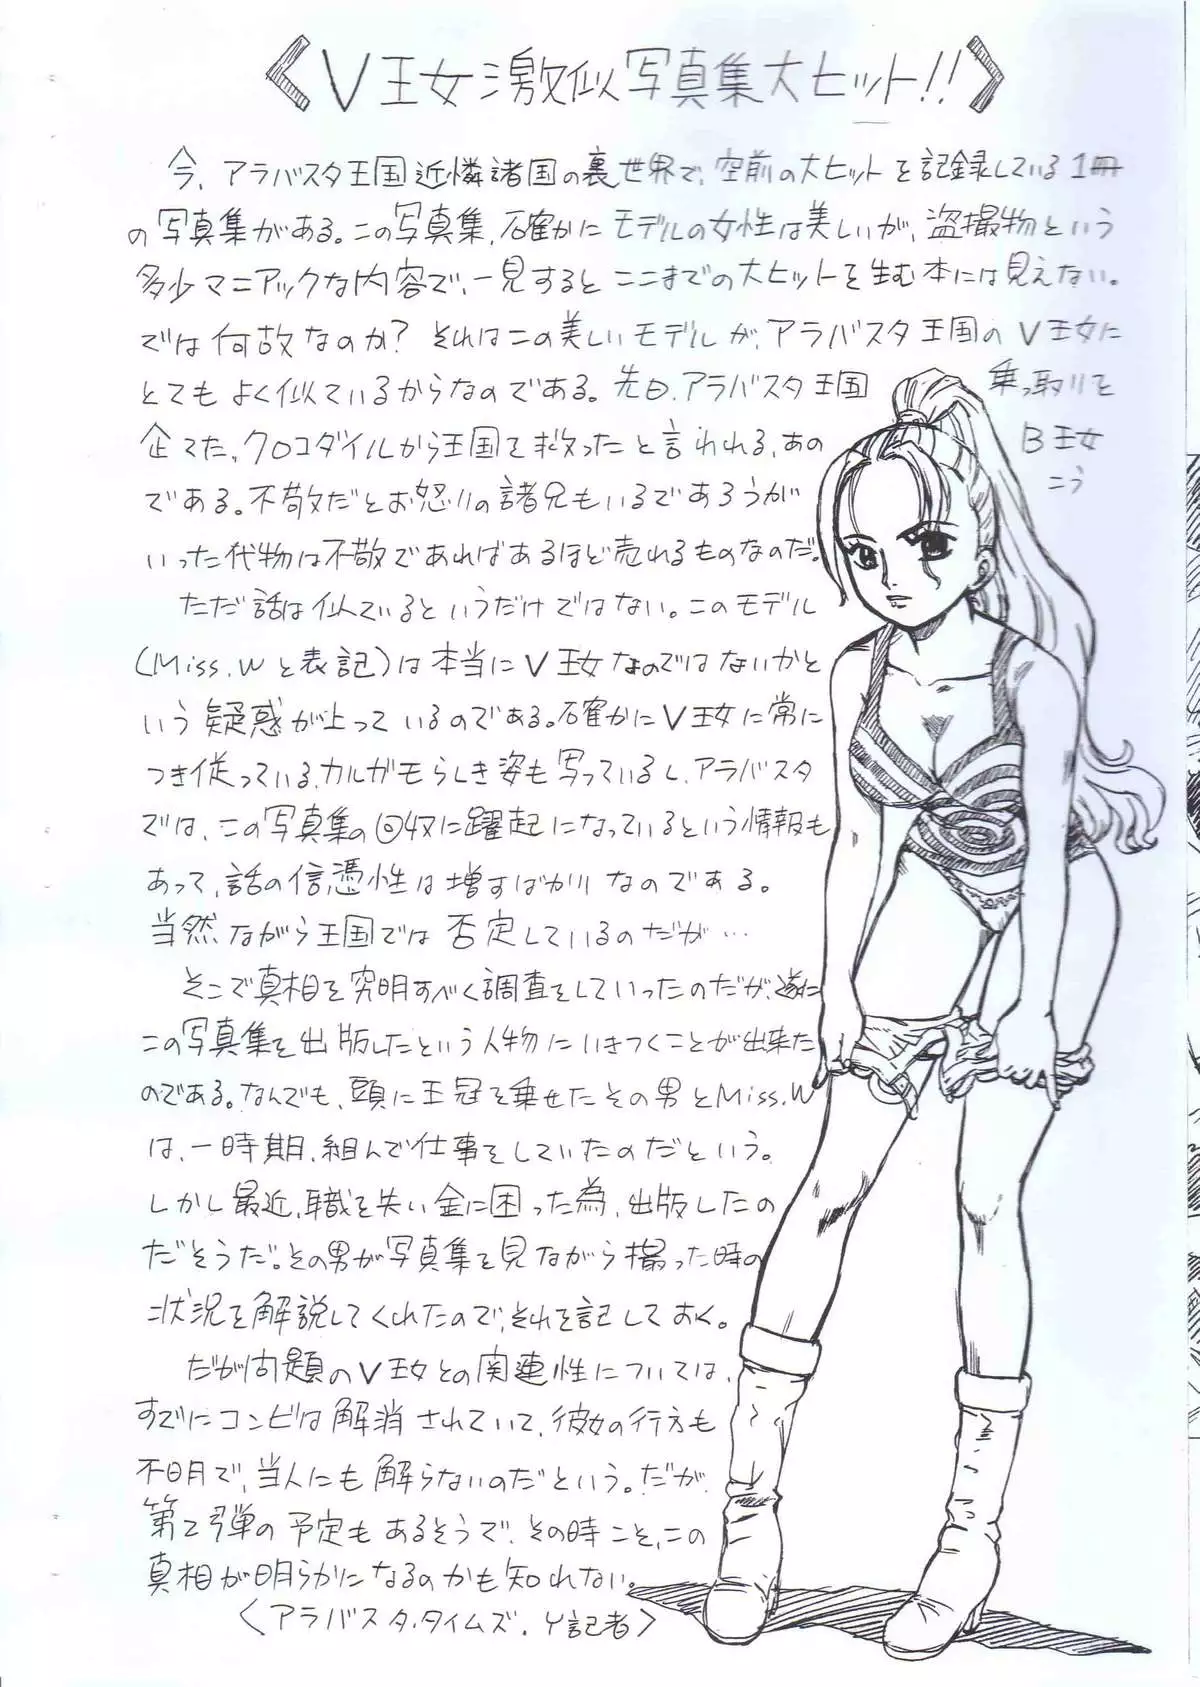 《V王女激似写真集大ヒット!!》
今、アラバスタ王国近隣諸国の裏世界で、空前の大ヒットを記録している1冊
の写真集がある。この写真集、確かにモデルの女性は美しいが、盗撮物という
多少マニアックな内容で、一見するとここまでの大ヒットを生む本には見えない。
では何故なのか? それはこの美しいモデルが、アラバスタ王国のV王女に
とてもよく似ているからなのである。先日、アラバスタ王国 乗っ取りを
企てた、クロコダイルから王国を救ったと言われる、あの B王女
である。不敬だとお怒りの諸兄もいるであろうが こう
いった代物は不敬であればあるほど売れるものなのだ。
ただ話は似ているというだけではない。このモデル
(Miss.Wと表記)は本当にV王女なのではないかと
いう疑惑が上っているのである。確かにV王女に常に
つき従っている、カルガモらしき姿も写っているし、アラバスタ
では、この写真集の回収に躍起になっているという情報も
あって、話の信憑性は増すばかりなのである。
当然ながら王国では否定しているのだが…
そこで真相を究明すべく調査をしていったのだが、遂に
この写真集を出版したという人物にいきつくことが出来た
のである。なんでも、頭に王冠を乗せたその男とMiss.W
は、一時期、組んで仕事をしていたのだという。
しかし最近、職を失い金に困った為、出版したの
だそうだ。その男が写真集を見ながら撮った時の
状況を解説してくれたので、それを記しておく。
だが問題のV王女との関連性については、
すでにコンビは解消されていて、彼女の行方も
不明で、当人にも解らないのだという。だが
第2弾の予定もあるそうで、その時こそ、この
真相が明らかになるのかも知れない。
〈アラバスタ.タイムズ. Y記者〉